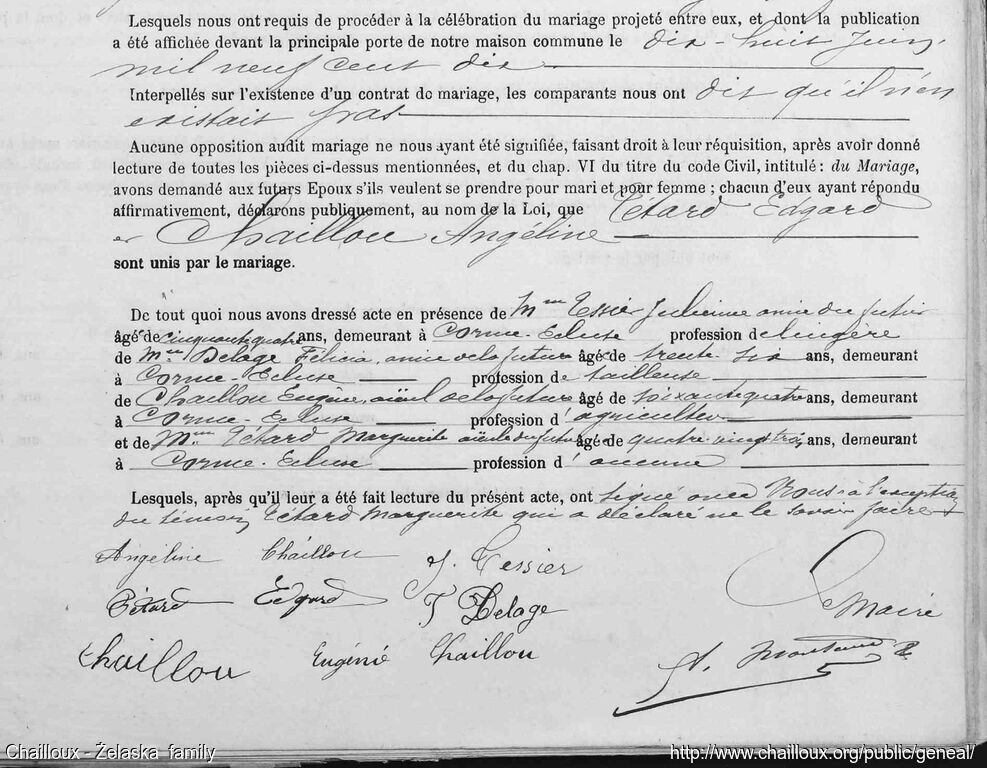 Lesquels nous ont requis de procéder à la célébration du mariage projeté entre eux, et dont la publication
a été affichée devant la principale porte de notre maison commune le dix-huit juin
mil neuf cent dix
Interpellés sur l'existence d'un contrat de mariage, les comparants nous ont dit qu'il n'en
existait pas
Aucune opposition audit mariage ne nous ayant été signifiée, faisant droit à leur réquisition, après avoir donné
lecture de toutes les pièces ci-dessus mentionnées, et du chap. VI du titre du code Civil, intitulé : du Mariage,
avons demandé aux futurs Epoux s'ils veulent se prendre pour mari et pour femme ; chacun d'eux ayant répondu
affirmativement, déclarons publiquement, au nom de la Loi, que Tétard Edgard
et Chaillou Angéline
sont unis par le mariage.
De tout quoi nous avons dressé acte en présence de Mme Tessier Julienne amie du futur
âgé de cinquante quatre ans, demeurant à Corme-Ecluse profession de lingère
de Mme Delage Félicia, amie de la future âgé de trente six ans, demeurant
à Corme-Ecluse profession de tailleuse
de Chaillou Eugène, aïeul de la future âgé de soixante quatre ans, demeurant
à Corme-Ecluse profession d'agriculteur
et de Mme Tétard Marguerite aïeule du futur âgé de quatre-vingt trois ans, demeurant
à Corme-Ecluse profession d'aucune
Lesquels, après qu'il leur a été fait lecture du présent acte, ont signé avec Nous à l'exception
du témoin Tétard Marguerite qui a déclaré ne le savoir faire
Angéline Chaillou J. Tessier
Tétard Edgard F Delage
Le Maire
Chaillou Eugénie Chaillou
Chailloux - Żelaska family
http://www.chailloux.org/public/geneal/